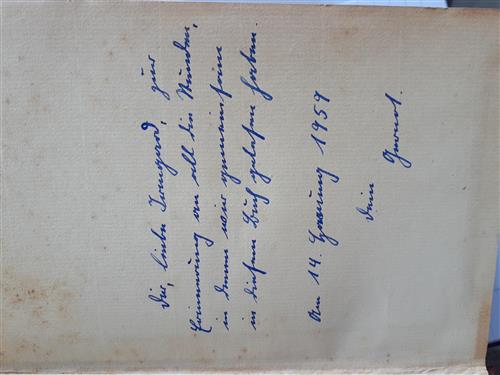 Dir, liebe Irmgard, zur
Erinnerung an all die Stunden,
in denen wir gemeinsam
in diesem Buch gelesen haben.
Am 14. Hornung 1959
Dein Gernot.